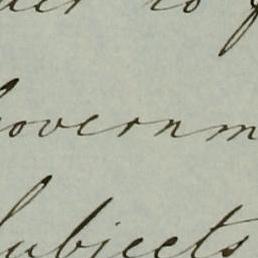 to
governm
subjects